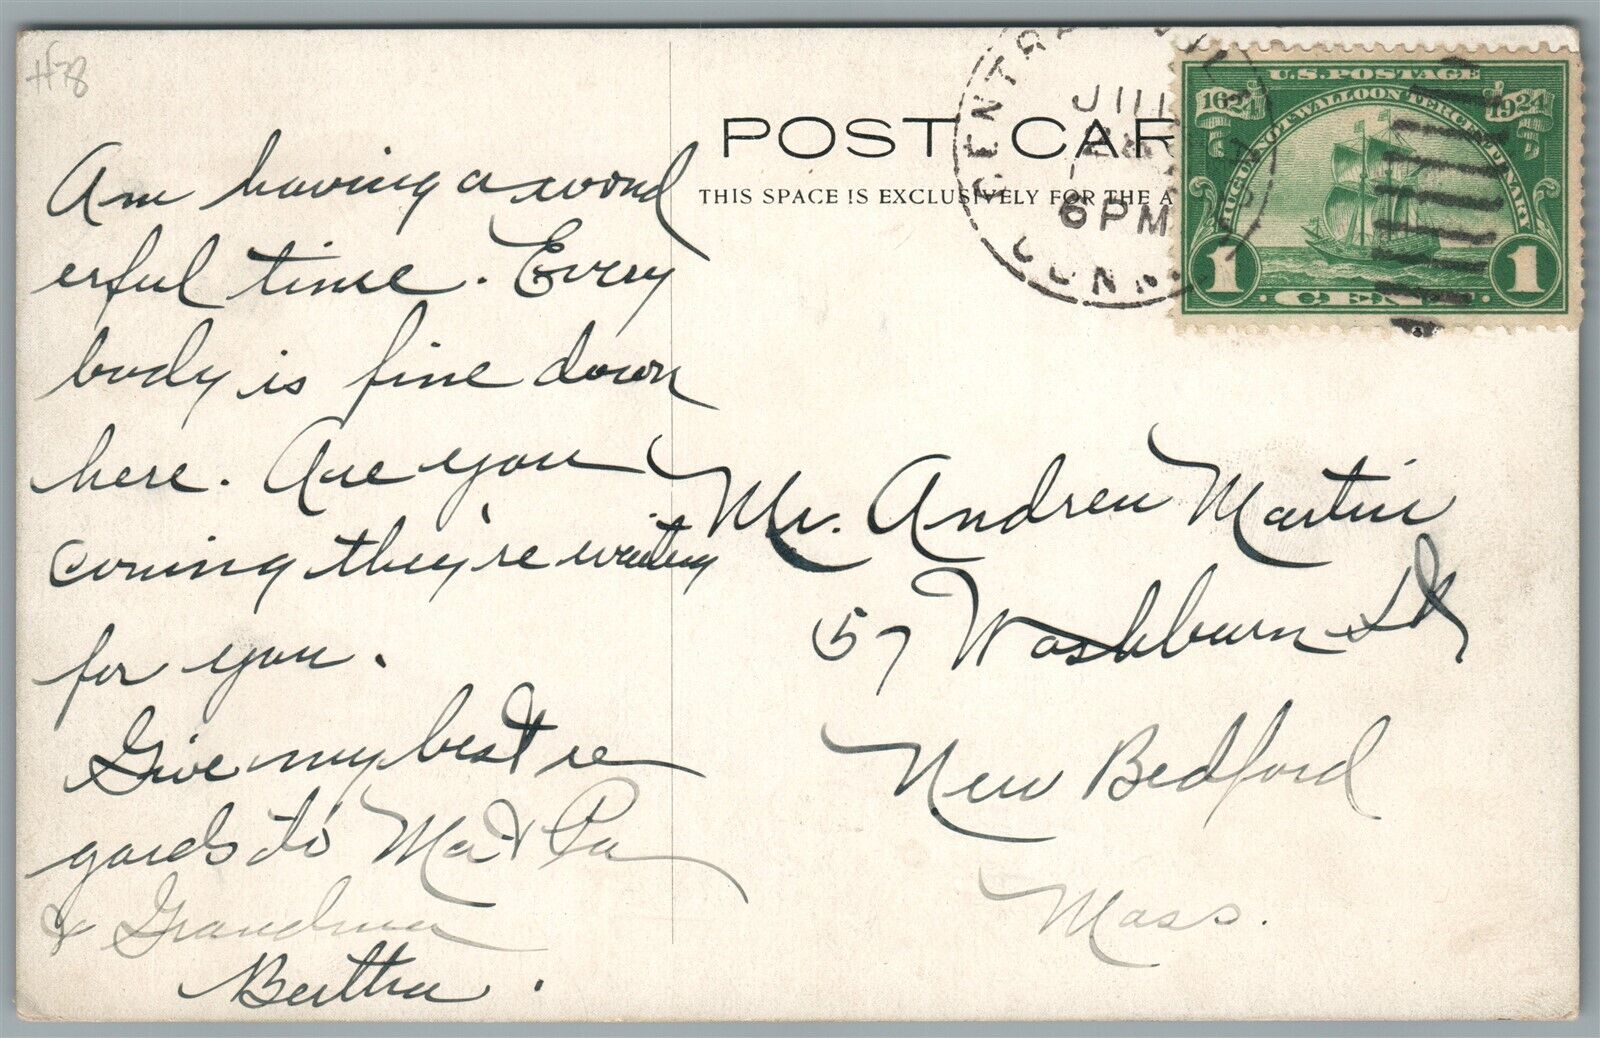 #78
Am having a wond
erful time. Every
body is fine down
here. Are you
coming they're waiting
for you.
Give my best re
gards to Ma & Pa
& Grandma
Bertha.
POST CAR
THIS SPACE IS EXCLUSIVELY FOR THE A
6 PM
CONN.
U.S. POSTAGE
1624 1924
HUGUENOT-WALLOON TERCENTENARY
1 CENT 1
Mr. Andrew Martin
57 Washburn St
New Bedford
Mass.